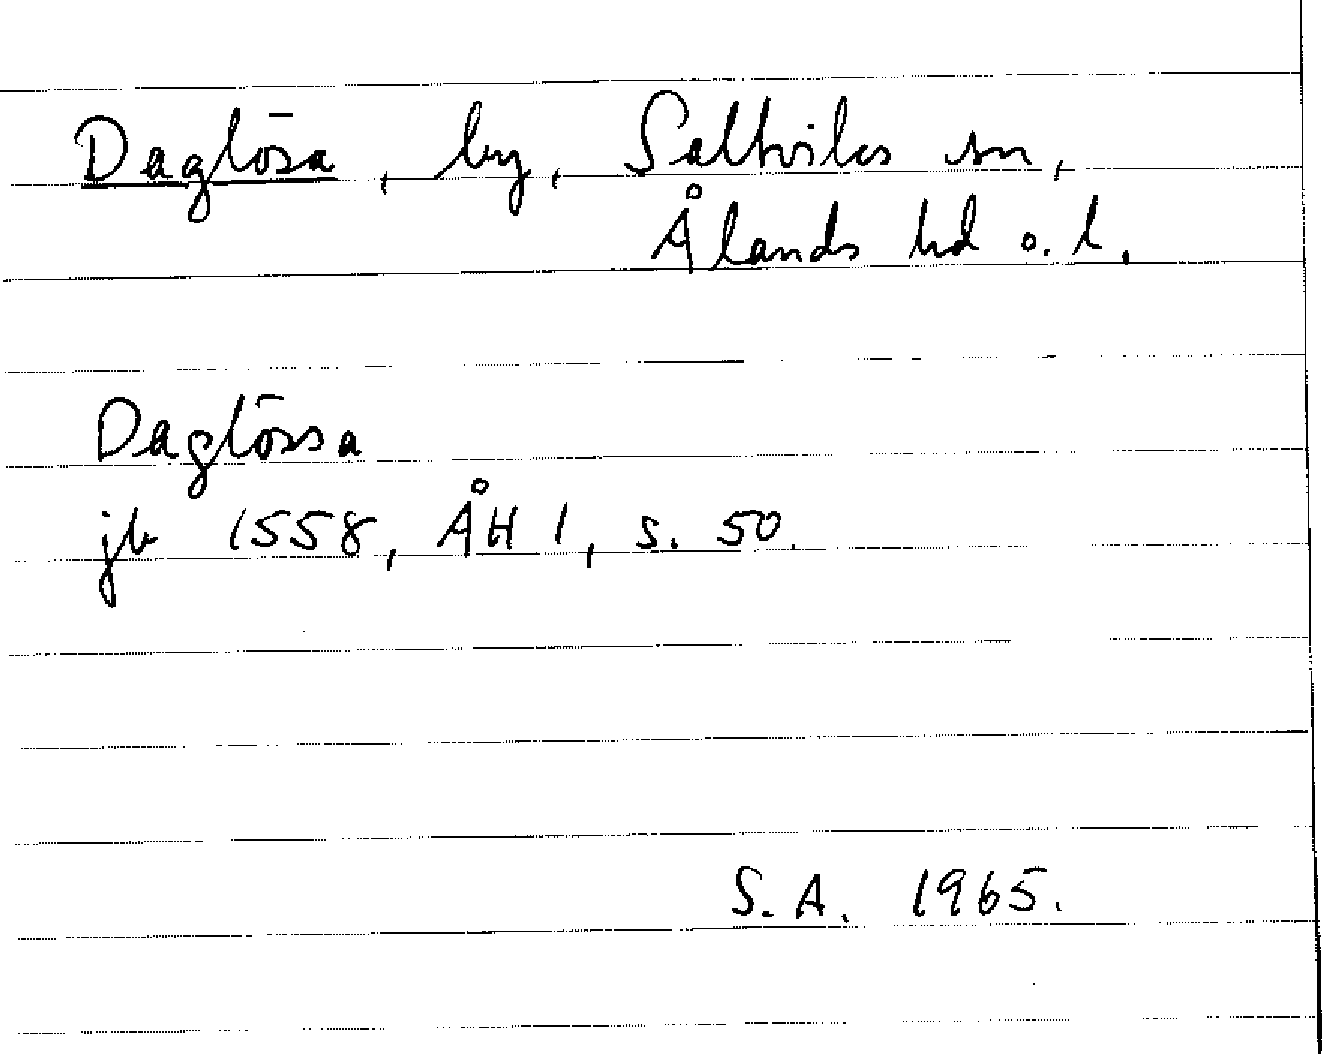 Daglösa, by, Saltviks sn,
Ålands hd o. l.
Daglössa
jb 1558, ÅH 1, s. 50.
S.A. 1965.